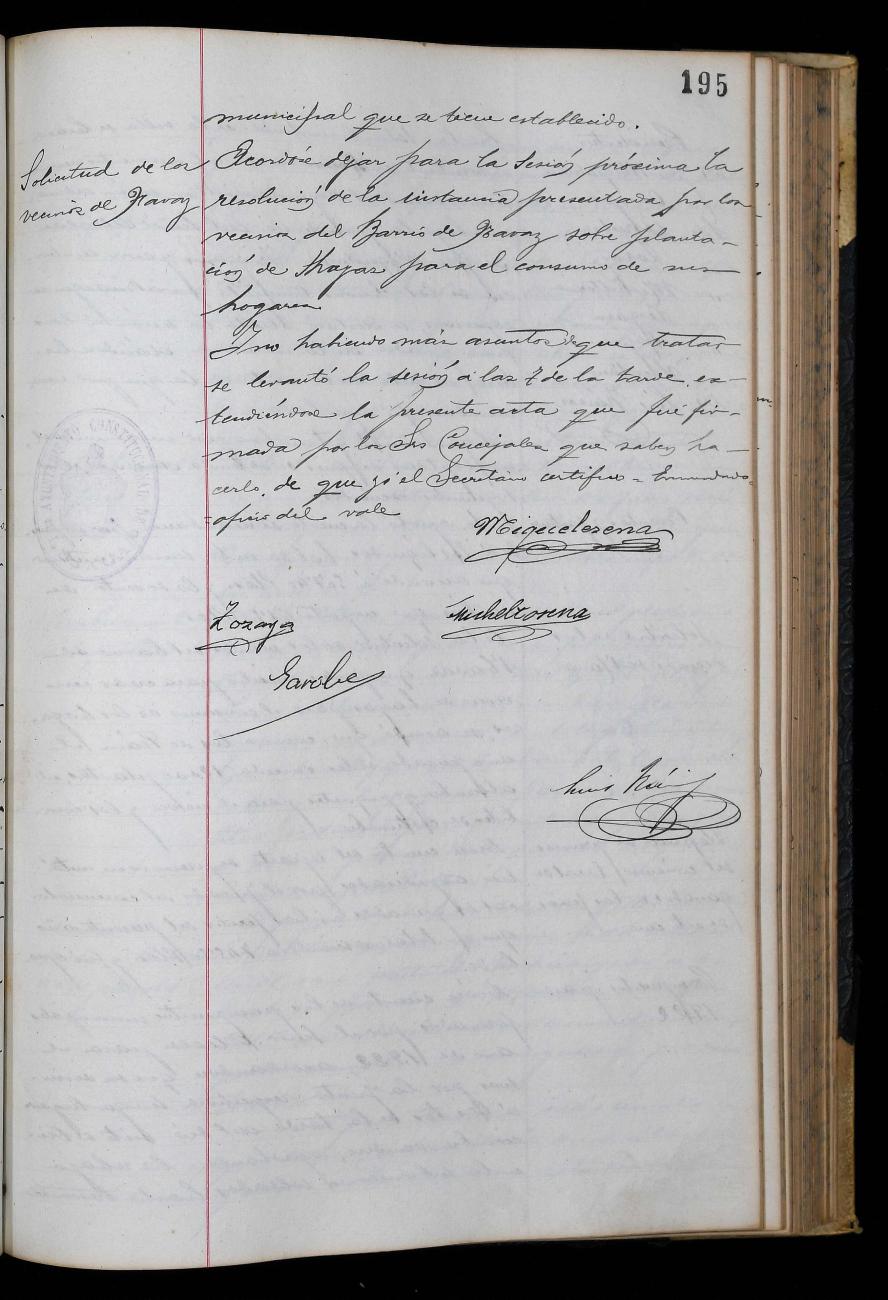 195
municipal que se tiene establecido.
Solicitud de los
vecinos de
Acordóse dejar para la sesión próxima la
resolución de la instancia presentada por los
vecinos del Barrio de sobre planta-
ción de para el consumo de sus
hogares
Y no habiendo más asuntos de que tratar
se levantó la sesión a las 7 de la tarde, ex-
tendiéndose la presente acta que fué fir-
mada por los Srs Concejales que saben ha-
cerlo, de que yó el Secretario certifico = Enmendado=
=oficio del vale
Miquelerena
Zozaya
Micheltorena
Garobe
Luis
AYUNTAMIENTO CONSTITUCIONAL DE